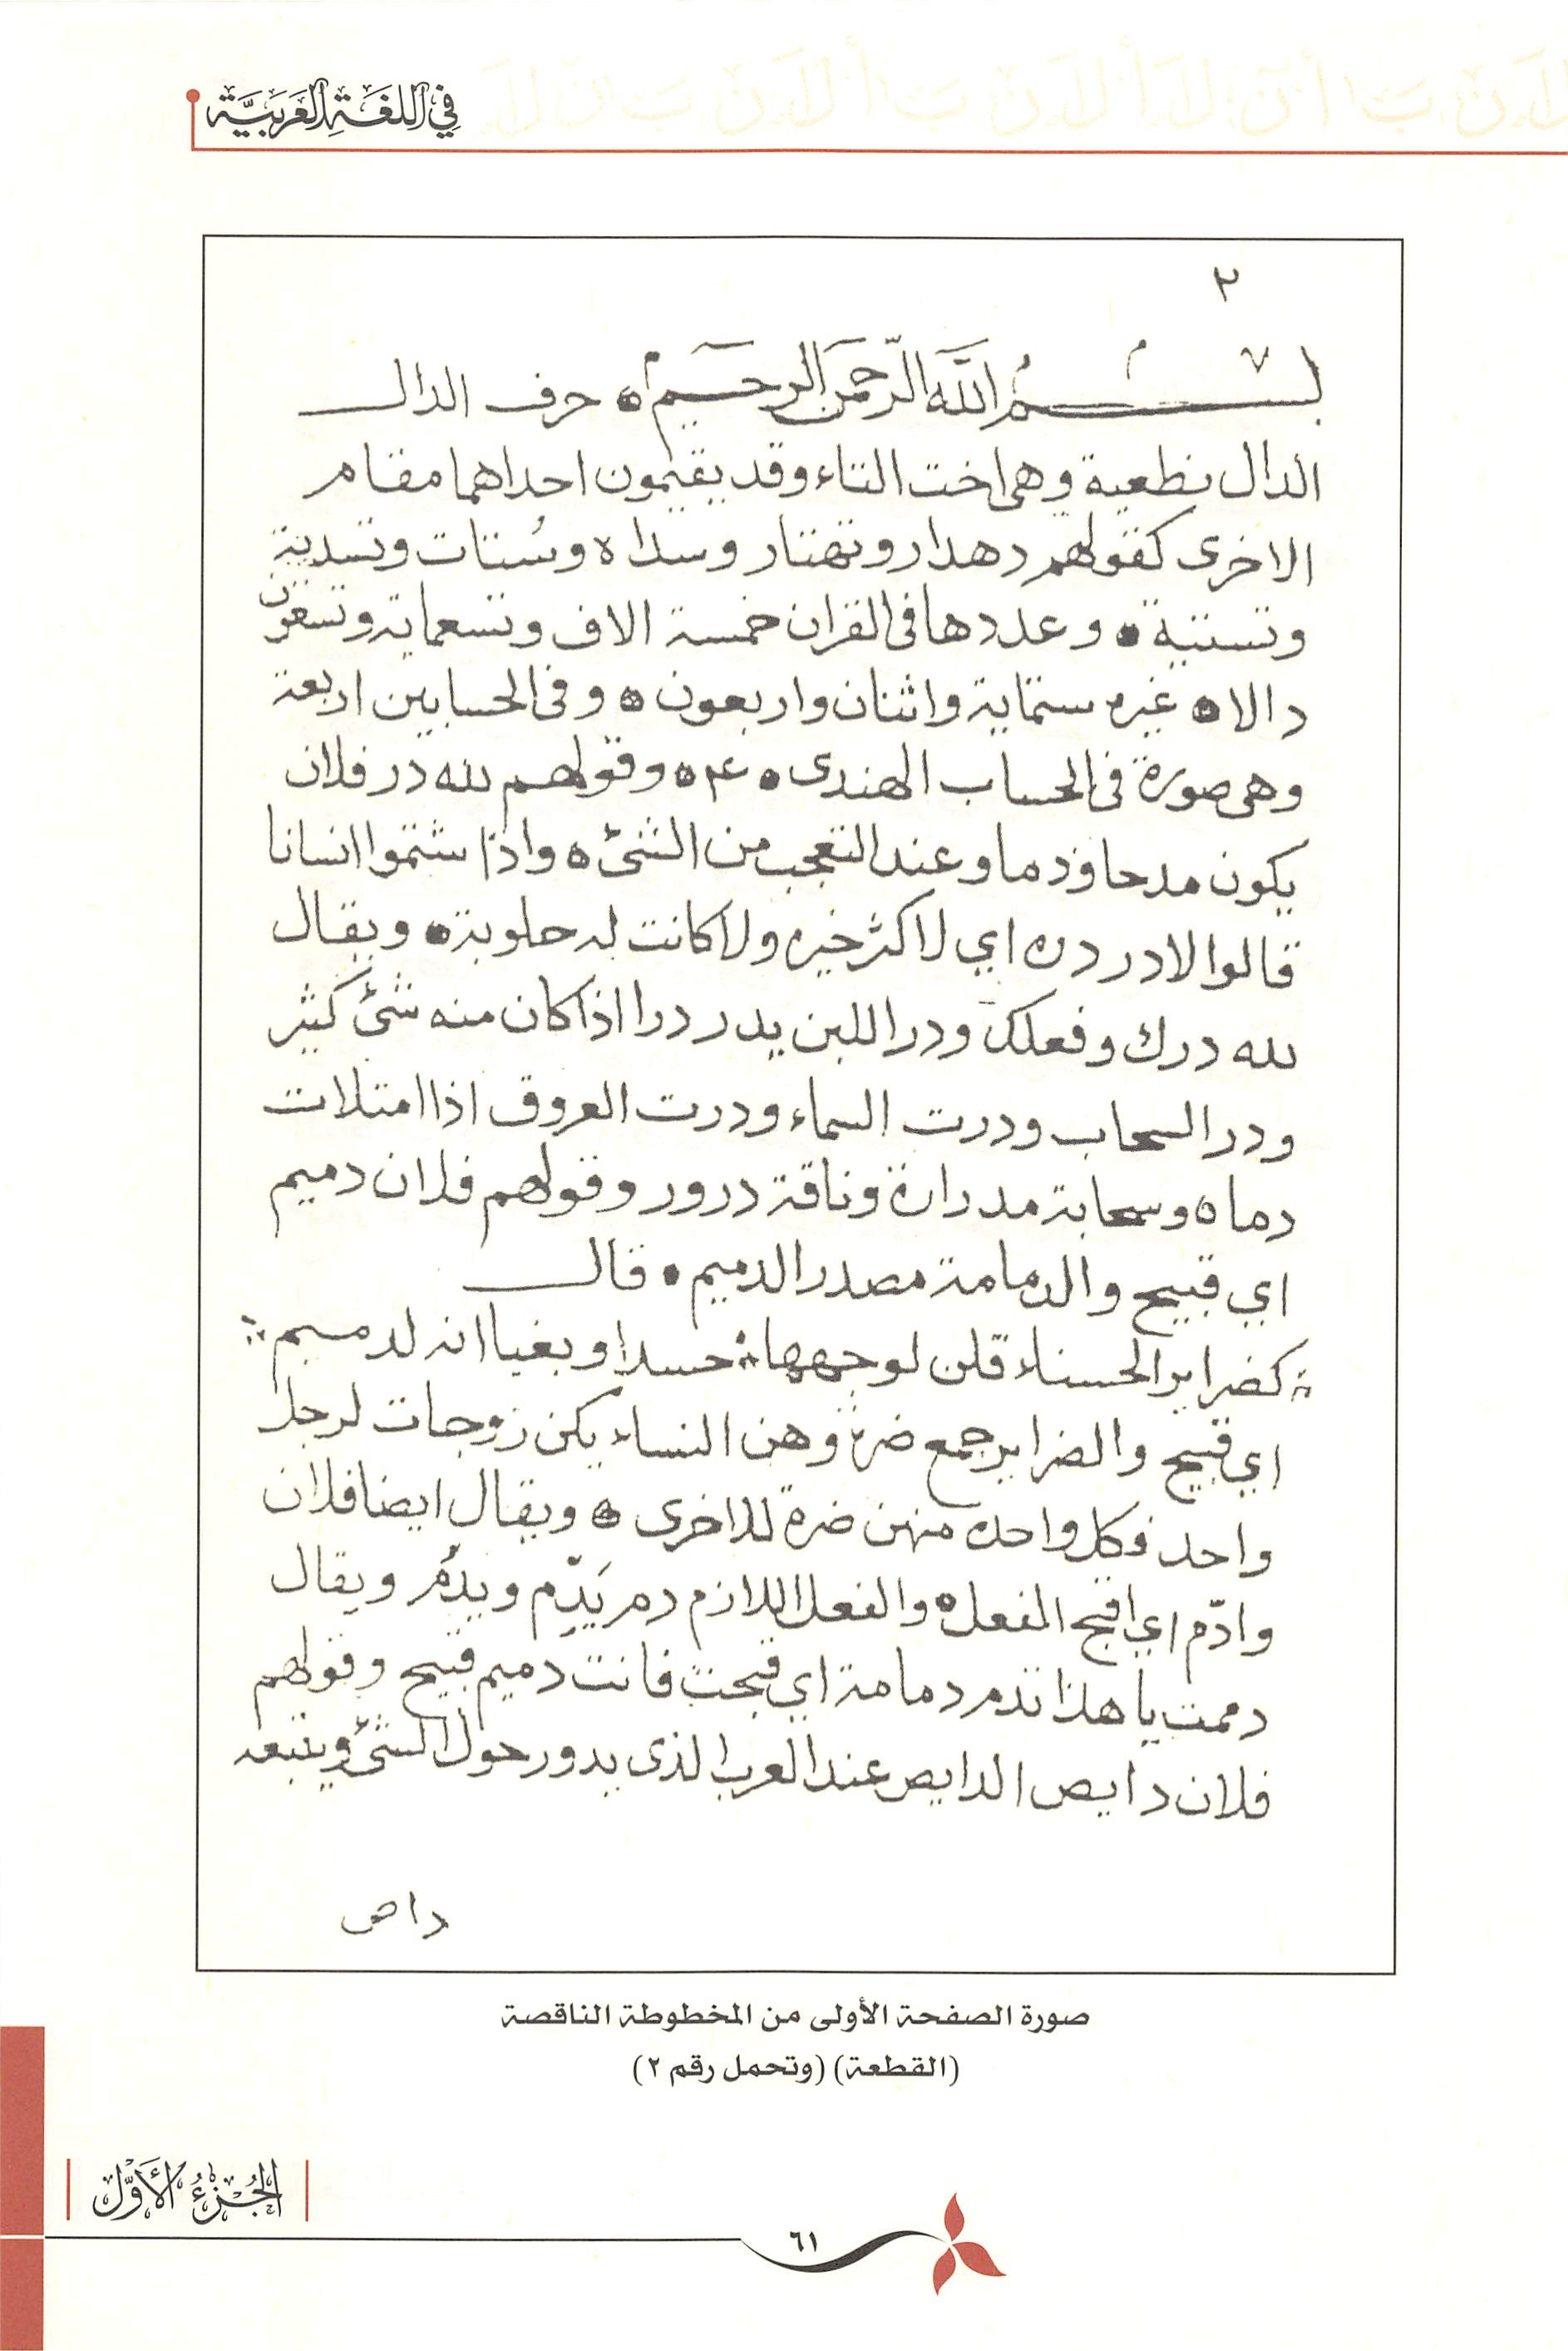 في اللغَةِ العَرَبيَّة
٢
بسم الله الرَّحمَن الرحيم ه حرف الدال
الدال نطعية وهي اخت التاء وقد يقيمون احداهما مقام
الاخرى كقولهم دهدار وتهتار وسداه وسُتات وتسدية
وتستية ه وعددها في القران خمسة الاف وتسعماية وتسعون
دالا ه غيره ستماية واثنان واربعون ه وفي الحسابين اربعة
وهي صورة في الحساب الهندى ه ۴ ه وقولهم لله در فلان
يكون مدحا وذما وعند التعجب من الشئ ه واذا شتموا انسانا
قالوا لا در دره اي لا كثر خيره ولا كانت له حلوبة ه ويقال
لله درك وفعلك ودر اللبن يدر درا اذا كان منه شئ كثير
ودر السحاب ودرت السماء ودرت العروق اذا امتلات
دما ه وسحابة مدرارة وناقة درور وقولهم فلان دميم
اي قبيح والدمامة مصدر الدميم ه قال
كضراير الحسناء قلن لوجهها ه حسدا وبغيا انه لدميم
اي قبيح والضراير جمع ضرة وهن النساء يكن زوجات لرجل
واحد فكل واحده منهن ضرة للاخرى ه ويقال ايضا فلان
وادّم اي اقبح الفعل ه والفعل اللازم دم يَدِّم ويدُم ويقال
دممت يا هذا تدم دمامة اي قبحت فانت دميم قبيح وقولهم
فلان دايص الدايص عند العرب الذى يدور حول الشئ ويتبعه
داص
صورة الصفحة الأولى من المخطوطة الناقصة
(القطعة) (وتحمل رقم ٢)
الجُزءُ الأَوَّل
٦١